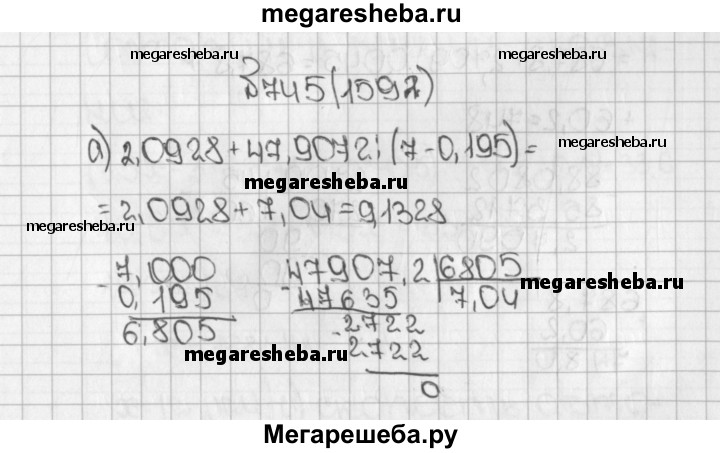 megaresheba.ru
megaresheba.ru megaresheba.ru
745(1592)
а) 2,0928+47,9072:(7-0,195)=
megaresheba.ru
megaresheba.ru
=2,0928+7,04=9,1328
megaresheba.ru
megaresheba.ru
7,000 47907,2 6805
- 0,195 - 47635 7,04
6,805 - 2722
2722
0
megaresheba.ru
megaresheba.ru
Мегарешеба.ру